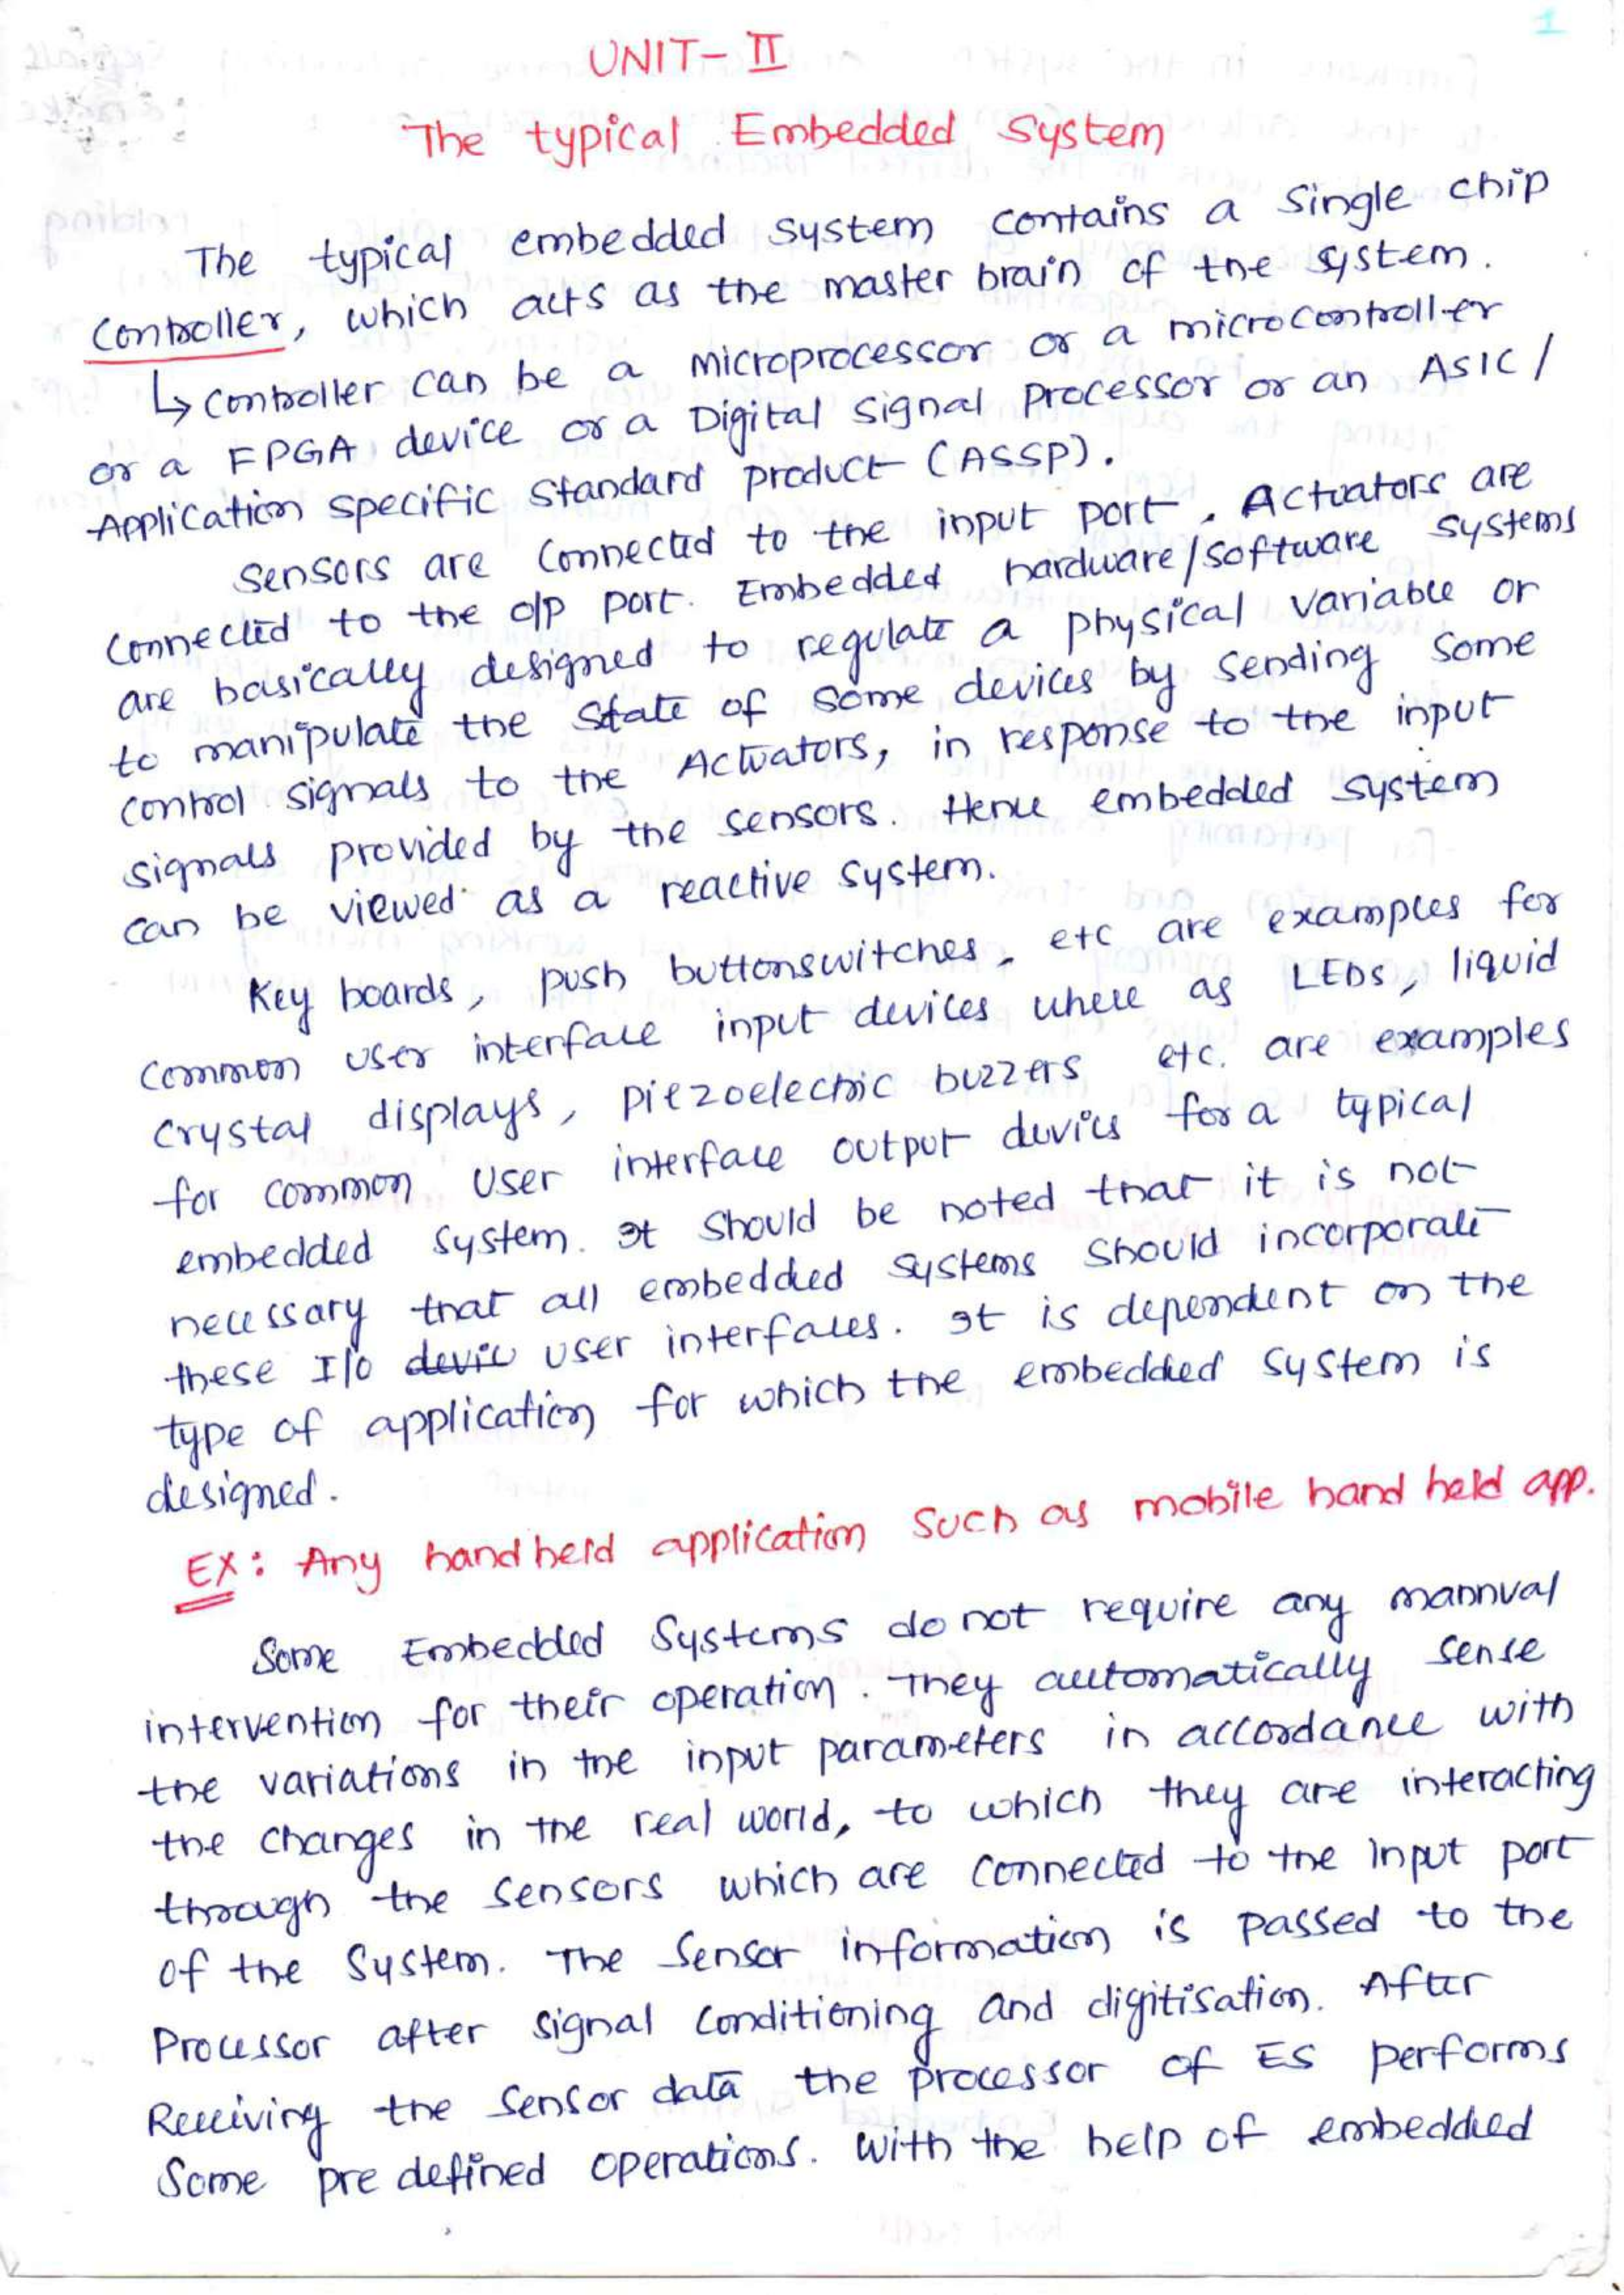 1
UNIT- II
The typical Embedded System
The typical embedded system contains a single chip
controller, which acts as the master brain of the system.
↳ controller can be a microprocessor or a microcontroller
or a FPGA device or a Digital signal Processor or an ASIC /
Application specific standard product (ASSP).
sensors are connected to the input port. Actuators are
connected to the o/p port. Embedded hardware/software systems
are basically designed to regulate a physical variable or
to manipulate the state of some devices by sending some
control signals to the Actuators, in response to the input
signals provided by the sensors. Hence embedded system
can be viewed as a reactive system.
Key boards, push buttonswitches, etc are examples for
common user interface input devices where as LEDs, liquid
crystal displays, piezoelectric buzzers etc. are examples
for common user interface output devices for a typical
embedded system. It should be noted that it is not
necessary that all embedded systems should incorporate
these I/o devic user interfaces. It is dependent on the
type of application for which the embedded system is
designed.
EX: Any handheld application such as mobile hand held app.
Some Embedded Systems do not require any mannual
intervention for their operation. They automatically sense
the variations in the input parameters in accordance with
the changes in the real world, to which they are interacting
through the sensors which are connected to the input port
of the system. The sensor information is passed to the
Processor after signal conditioning and digitisation. After
Receiving the sensor data the processor of ES performs
Some pre defined operations. with the help of embedded